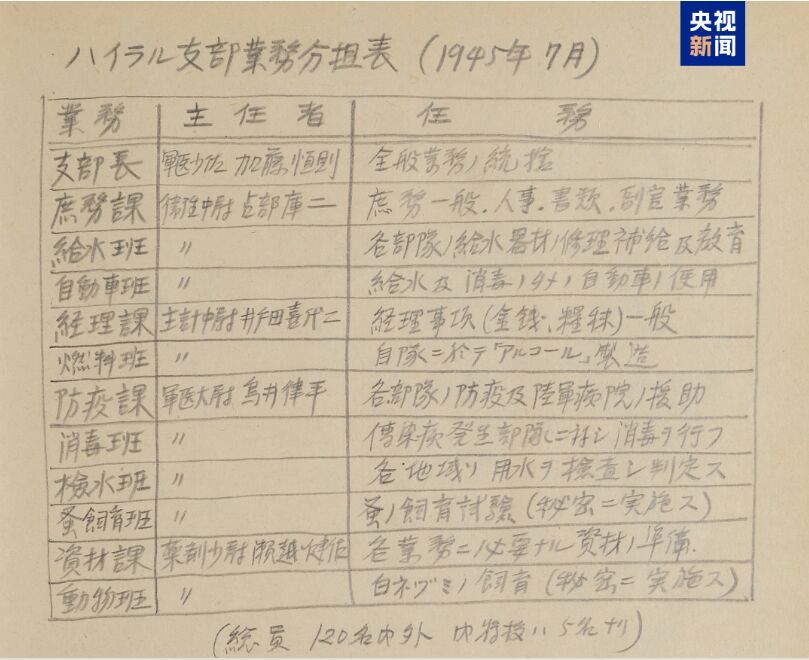 央视
新闻
ハイラル支部業務分担表 (1945年7月)
業務 主任者 任務
支部長 軍医少佐 加藤恒則 全般業務ノ統括
庶務課 衛生中尉 占部庫二 庶務一般.人事.書類.副官業務
給水班 〃 各部隊ノ給水器材ノ修理補給及教育
自動車班 〃 給水及消毒ノタメノ自動車ノ使用
経理課 主計中尉 井田喜代二 経理事項(金銭、糧秣)一般
燃料班 〃 自隊ニ於テ「アルコール」製造
防疫課 軍医大尉 鳥井律平 各部隊ノ防疫及陸軍病院ノ援助
消毒班 〃 傳染病発生部隊ニ対シ消毒ヲ行フ
檢水班 〃 各地域ノ用水ヲ檢査シ判定ス
蚤飼育班 〃 蚤ノ飼育試驗(秘密ニ実施ス)
資材課 薬剤少尉 瀬越健佐 各業務ニ必要ナル資材ノ準備.
動物班 〃 白ネヅミノ飼育(秘密ニ実施ス)
(総員 120名内外 内将校ハ5名ナリ)